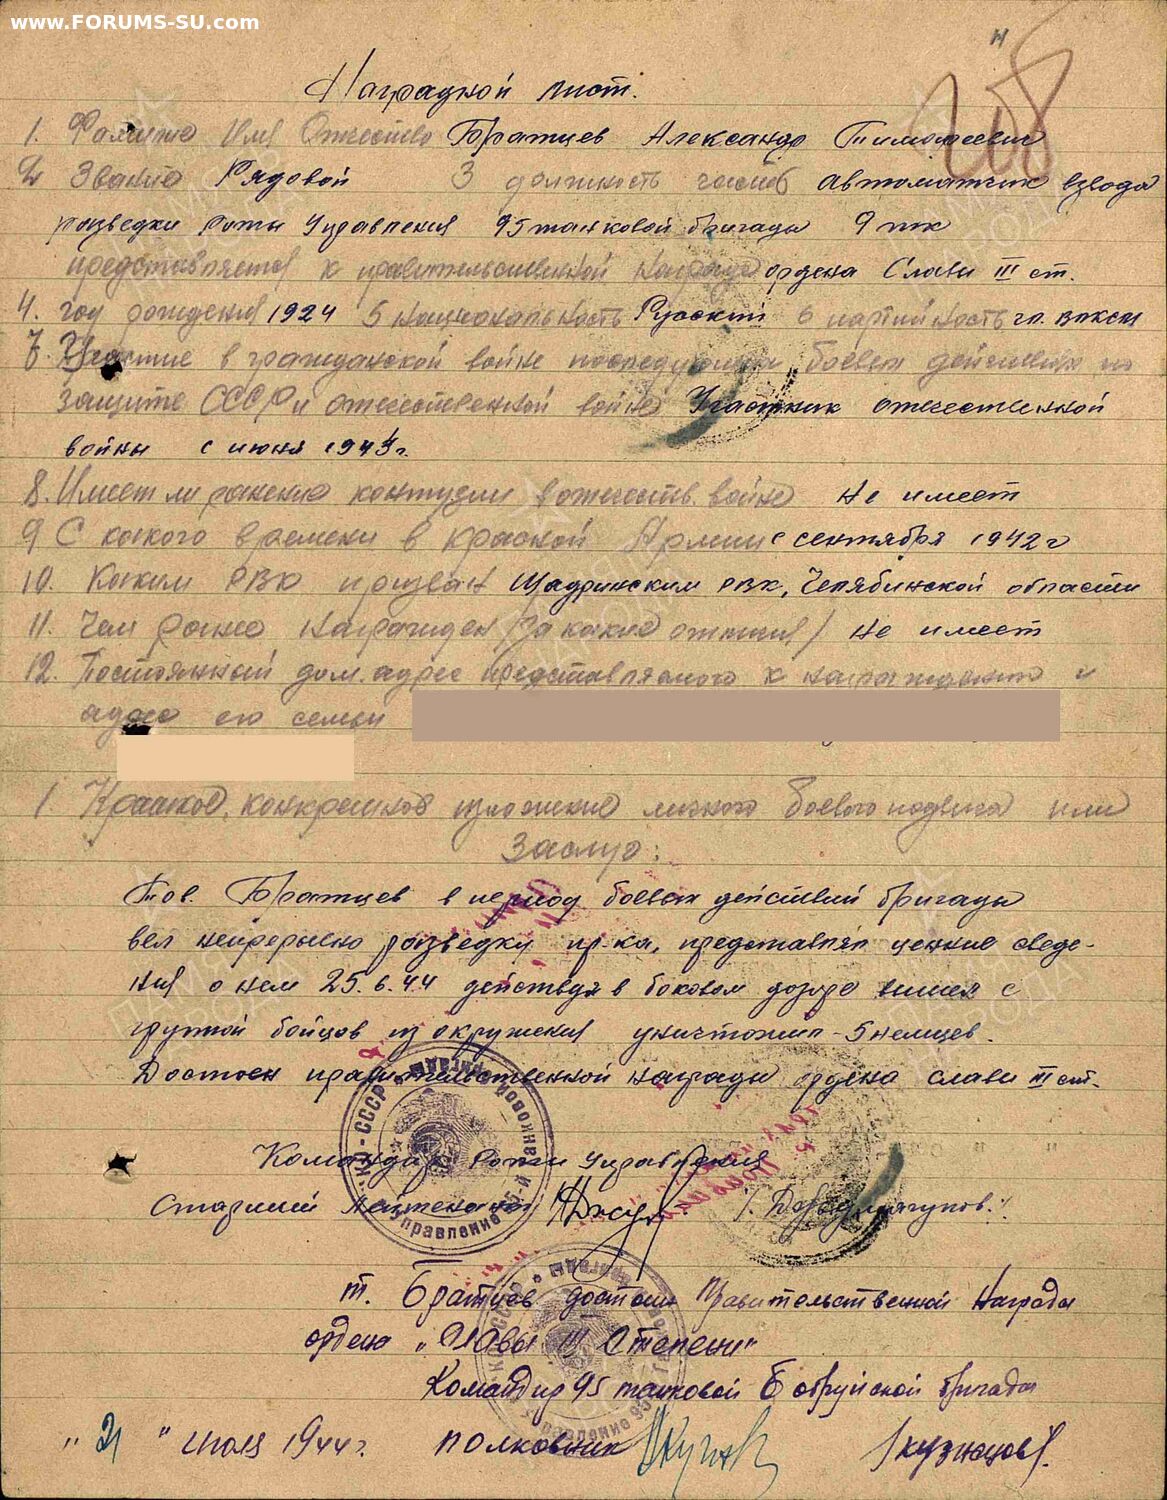 www.FORUMS-SU.com
Наградной лист.
1. Фамилия Имя Отчество Братцев Александр Тимофеевич
2 Звание Рядовой 3 должность часть Автоматчик взвода
разведки Роты Управления 95 танковой бригады 9 тк
представляется к правительственной награде ордена Слави III ст.
4. год рождения 1924 5 национальность Русский 6 партийность чл. влксм
7. Участие в гражданской войне последующих боевых действиях по
защите СССР и отечественной войне Участник отечественной
войны с июня 1944г.
8. Имеет ли ранения контузии в отечеств. войне не имеет
9 С какого времени в красной Армии с сентября 1942г
10. Каким РВК призван Шадринским РВК, Челябинской области
11. Чем ранее награжден (за какие отличия) не имеет
12. Постоянный дом. адрес представляемого к награждению и
адрес его семьи
1 Краткое, конкретное изложение личного боевого подвига или
Заслуг:
Тов. Братцев в период боевых действий бригады
вел непрерывно разведку пр-ка, представлял ценние сведе-
ния о нем 25.6.44 действуя в боковом дозоре с
группой бойцов из окружения уничтожил - 5 немцев.
Достоен правительственной награды ордена слави III ст.
Командир Роти Управления
Старший Лейтенант
т. Братцев достоин Правительственной Награды
ордена „Славы III Степени"
Командир 95 танковой Бобруйской бригады
„21" июля 1944г. полковник /Кузнецов/.